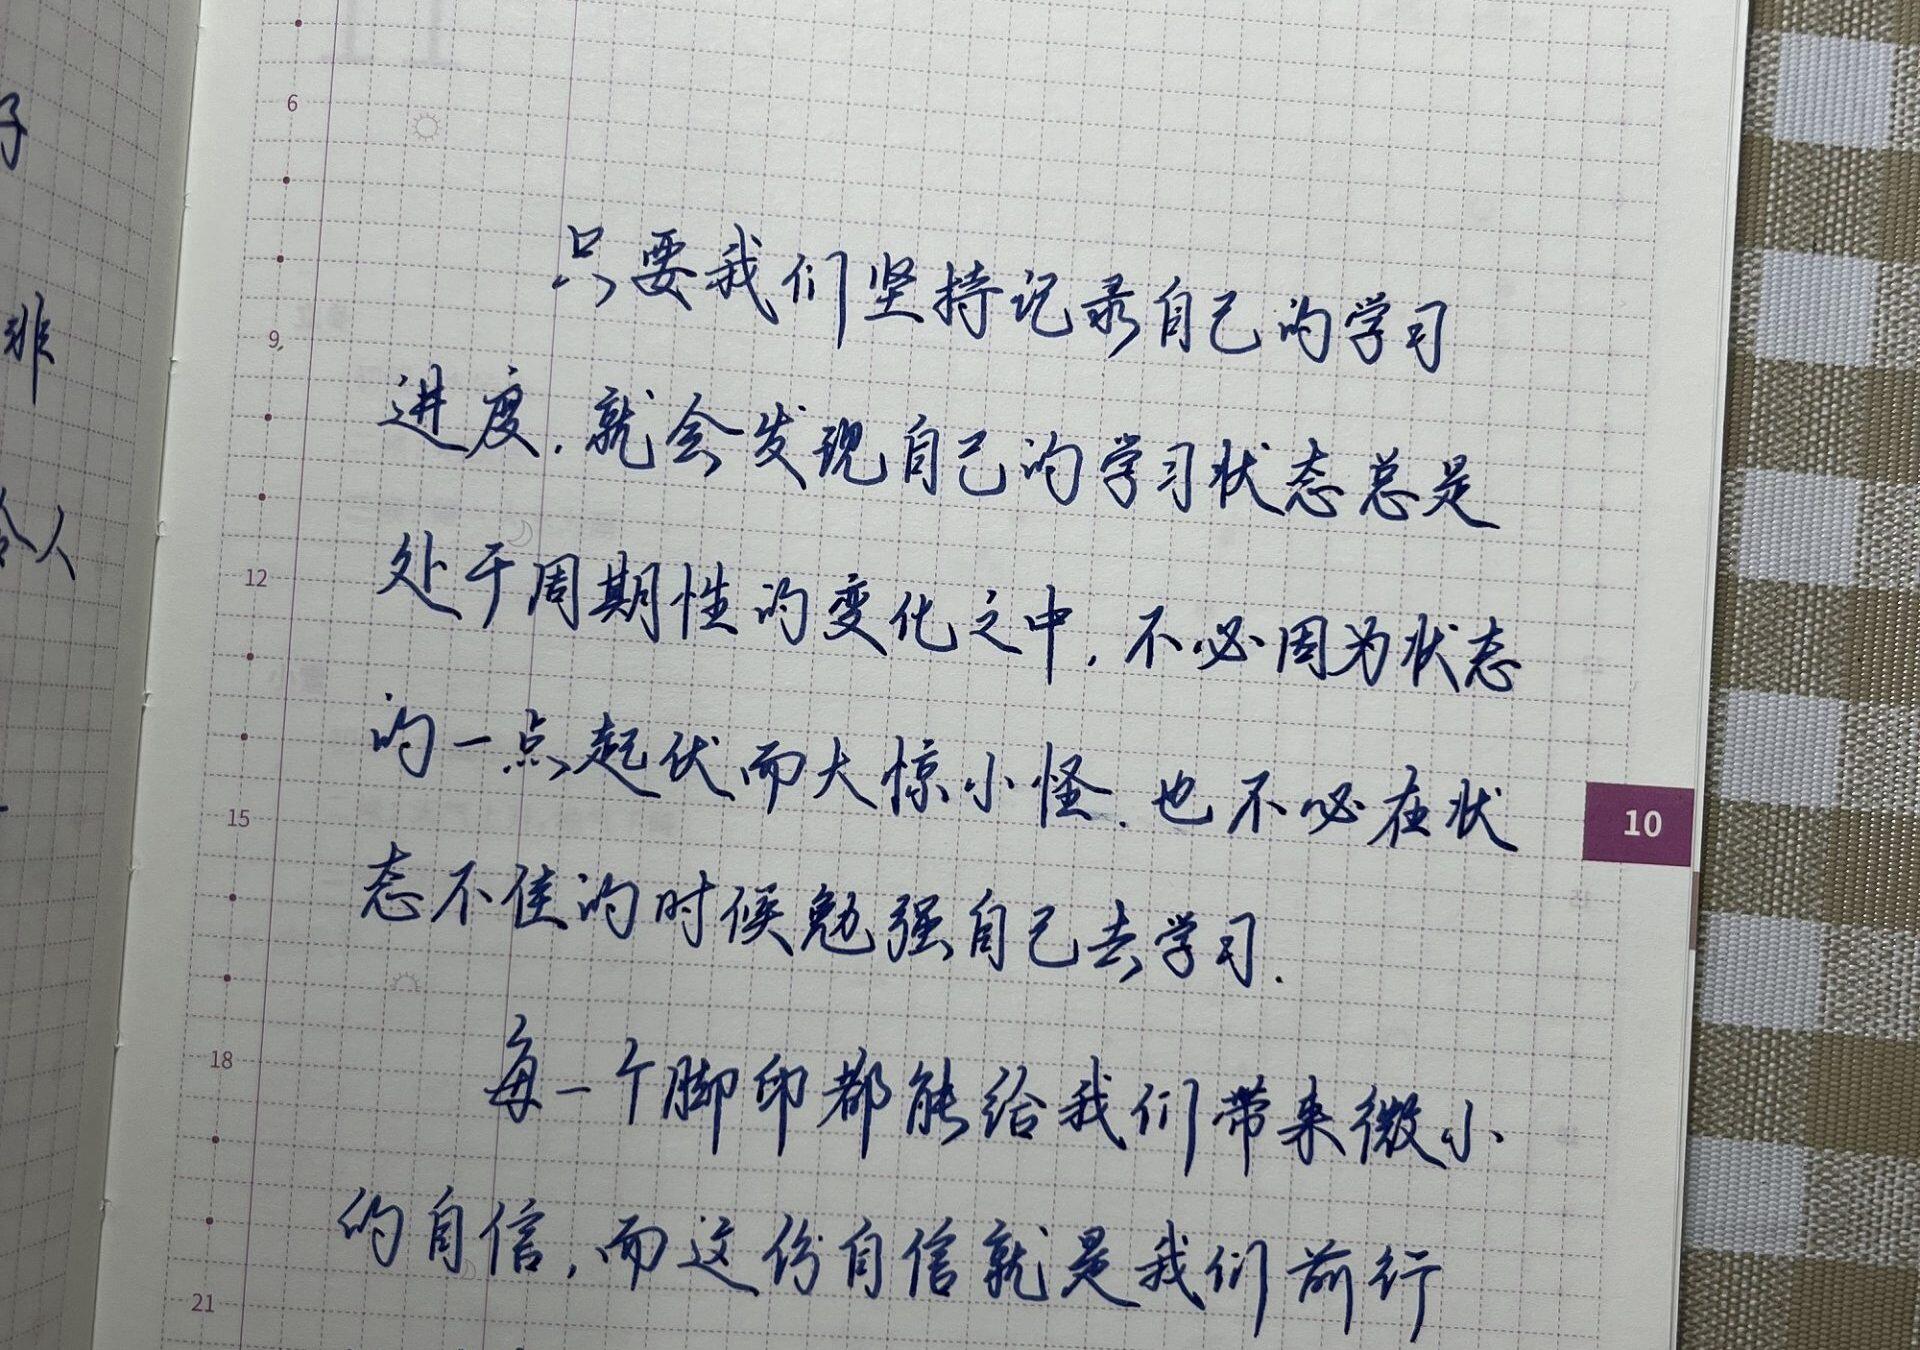 子
非
令人
6
9
12
15
18
21
10
只要我们坚持记录自己的学习
进度，就会发现自己的学习状态总是
处于周期性的变化之中，不必因为状态
的一点起伏而大惊小怪，也不必在状
态不佳的时候勉强自己去学习.
每一个脚印都能给我们带来微小
的自信，而这份自信就是我们前行